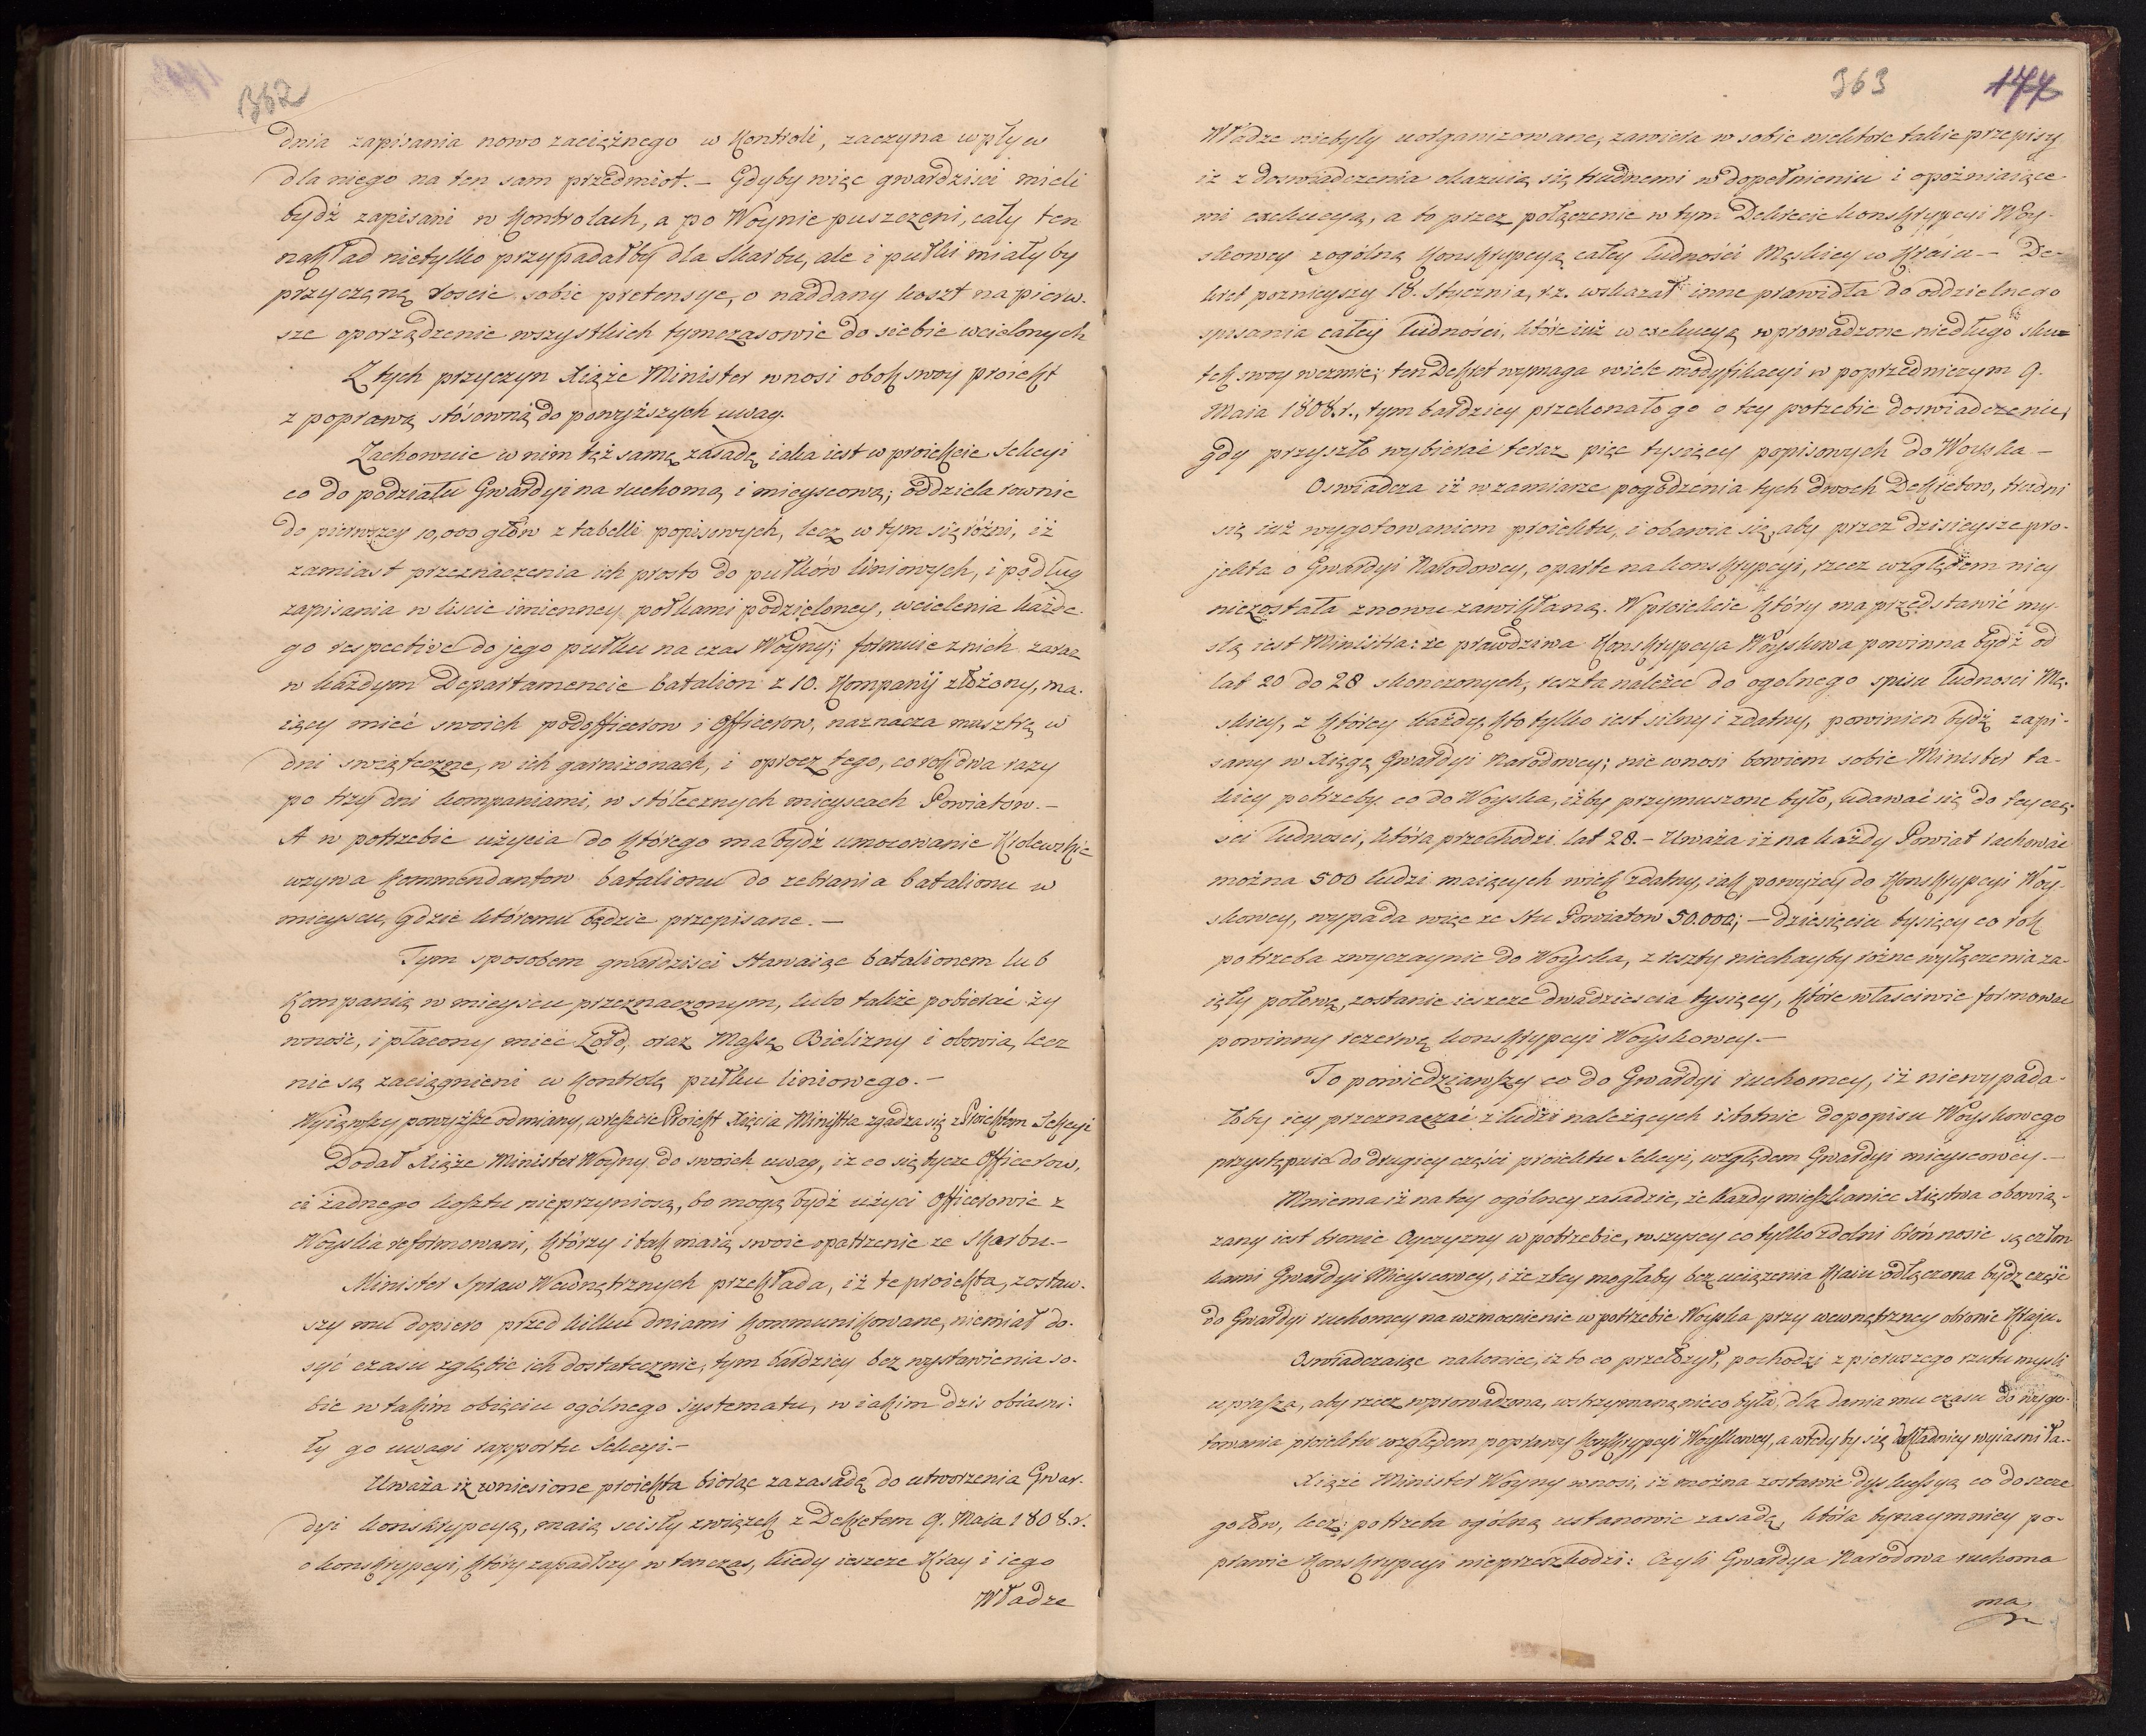 362
dnia zapisania nowo zaciężnego w Kontroli, zaczyna wpływ
dla niego na ten sam przedmiot. — Gdyby więc gwardzisci mieli
bydź zapisani w Kontrolach, a po Woynie puszczeni, cały ten
nakład nietylko przypadałby dla Skarbu, ale i pułki miałyby
przyczynę roscić sobie pretensye, o naddany koszt na pierw-
sze oporządzenie wszystkich tymczasowie do siebie wcielonych
Z tych przyczyn Xiąże Minister wnosi obok swoy proiekt
z poprawą stósowną do powyższych uwag.
Zachowuie w nim też samę zasadę iaka iest w proiekcie Sekcyi
co do podziału Gwardyi na ruchomą i mieyscową; oddziela rownie
do pierwszey 10,000 głów z tabelli popisowych, lecz w tym się różni, iż
zamiast przeznaczenia ich prosto do pułków liniowych, i podług
zapisania w liscie imienney pułkami podzieloney, wcielenia każde-
go respective do jego pułku na czas Woyny; formuie z nich zaraz
w każdym Departamencie batalion z 10. Kompanij złożony, ma-
iący mieć swoich podofficerow i Officerow, naznacza musztrę w
dni swiąteczne, w ich garnizonach, i oprocz tego, co rok dwa razy
po trzy dni kompaniami, w stółecznych mieyscach Powiatow. —
A w potrzebie użycia do którego ma bydź umocowanie Krolewskie
wzywa Kommendantow batalionu do zebrania batalionu w
mieyscu, gdzie któremu będzie przepisane. —
Tym sposobem gwardzisci stawaiąc batalionem lub
Kompanią w mieyscu przeznaczonym, lubo także pobierać ży
wność, i płacony mieć Żołd, oraz Massę Bielizny i obowia, lecz
nie są zaciągnieni w Kontrolę pułku liniowego. —
Wyiąwszy powyższe odmiany, w reszcie Proiekt Xięcia Ministra zgadza się z Proiektem Sekcyi
Dodał Xiąże Minister Woyny do swoich uwag, iż co się tycze Officerow,
ci żadnego kosztu nieprzyniosą, bo mogą bydź użyci Officerowie z
Woyska reformowani, którzy i tak maią swoie opatrzenie ze Skarbu. —
Minister Spraw Wewnętrznych przekłada, iż te proiekta, zostaw-
szy mu dopiero przed kilku dniami Kommunikowane, niemiał do-
syć czasu zgłębić ich dostatecznie, tym bardziey bez wystawienia so-
bie w takim obięciu ogólnego systematu, w iakim dzis obiasni-
ły go uwagi rapportu Sekcyi. —
Uważa iż wniesione proiekta biorąc za zasadę do utworzenia Gwar-
dyi konskrypcyą, maią scisły związek z Dekretem 9. Maia 1808. r.
o konskrypcyi, który zapadłszy w tenczas, kiedy ieszcze Kray i iego
Władze
363
177
Władze niebyły uorganizowane, zawiera w sobie niektore takie przepisy
iż z doswiadczenia okazuią się trudnemi w dopełnieniu i opoźniaiące
mi exekucyą, a to przez połączenie w tym Dekrecie konskrypcyi Woy-
skowey z ogólną Konskrypcyą całey ludności Męskiey w Kraiu — De-
kret poznieyszy 18. Stycznia, r.z. wskazał inne prawidła do oddzielnego
spisania całey ludności, które iuż w exekucyą wprowadzone niedługo sku-
tek swoy wezmie; ten Dekret wymaga wiele modyfikacyi w poprzedniczym 9.
Maia 1808. r., tym bardziey przekonało go o tey potrzebie doswiadczenie,
gdy przyszło wybierać teraz pięc tysięcy popisowych do Woyska —
Oswiadcza iż w zamiarze pogodzenia tych dwoch Dekretow, trudni
się iuż wygotowaniem proiektu, i obawia się, aby przez dzisieysze pro-
jekta o Gwardyi Narodowey, oparte na konskrypcyi, rzecz względem niey
niezostała znowu zawikłaną. W proiekcie który ma przedstawić my-
slą iest Ministra: że prawdziwa Konskrypcya Woyskowa powinna bydź od
lat 20 do 28 skonczonych, reszta należeć do ogolnego spisu ludnosci Mę-
skiey, z którey każdy, kto tylko iest silny i zdatny, powinien bydź zapi-
sany w Xięgę Gwardyi Narodowey; nie wnosi bowiem sobie Minister ta-
kiey potrzeby co do Woyska, iżby przymuszone było, udawać się do tey czę-
sci ludnosci, która przechodzi lat 28. — Uważa iż na każdy Powiat rachować
można 500 ludzi maiących wiek zdatny, iak powyżey do Konskrypcyi Woy-
skowey, wypada więc ze stu Powiatow 50.000; — dziesięciu tysięcy co rok
potrzeba zwyczaynie do Woyska, z reszty niechayby różne wyłączenia za-
ięły połowę, zostanie ieszcze dwadziescia tysięcy, które własciwie formować
powinny rezerwę konskrypcyi Woyskowey. —
To powiedziawszy co do Gwardyi ruchomey, iż niewypada-
łoby iey przeznaczać z ludzi należących istotnie do popisu Woyskowego
przystępuie do drugiey części proiektu Sekcyi, względem Gwardyi mieyscowey. —
Mniema iż na tey ogólney zasadzie, że każdy mieszkaniec Xięstwa obowią-
zany iest bronić Oyczyzny w potrzebie, wszyscy co tylko zdolni broń nosić są człon-
kami Gwardyi Mieyscowey, i że z tey mogłaby bez uciążenia Kraiu odłączona bydz część
do Gwardyi ruchomey na wzmocnienie w potrzebie Woyska przy wewnętrzney obronie Kraju.
Oswiadczaiąc nakoniec, iż to co przełożył, pochodzi z pierwszego rzutu mysli
uprasza, aby rzecz wprowadzona, wstrzymaną nieco była, dla dania mu czasu do wygo-
towania proiektu względem poprawy Konskrypcyi Woyskowey, a wtedy by się dokładniey wyiasniła. —
Xiąże Minister Woyny wnosi, iż można zostawić dyskussyą co do szcze
gołow, lecz: potrzeba ogólną ustanowić zasadę, która bynaymniey po-
prawie Konskrypcyi nieprzeszkodzi: Czyli Gwardya Narodowa ruchoma
ma